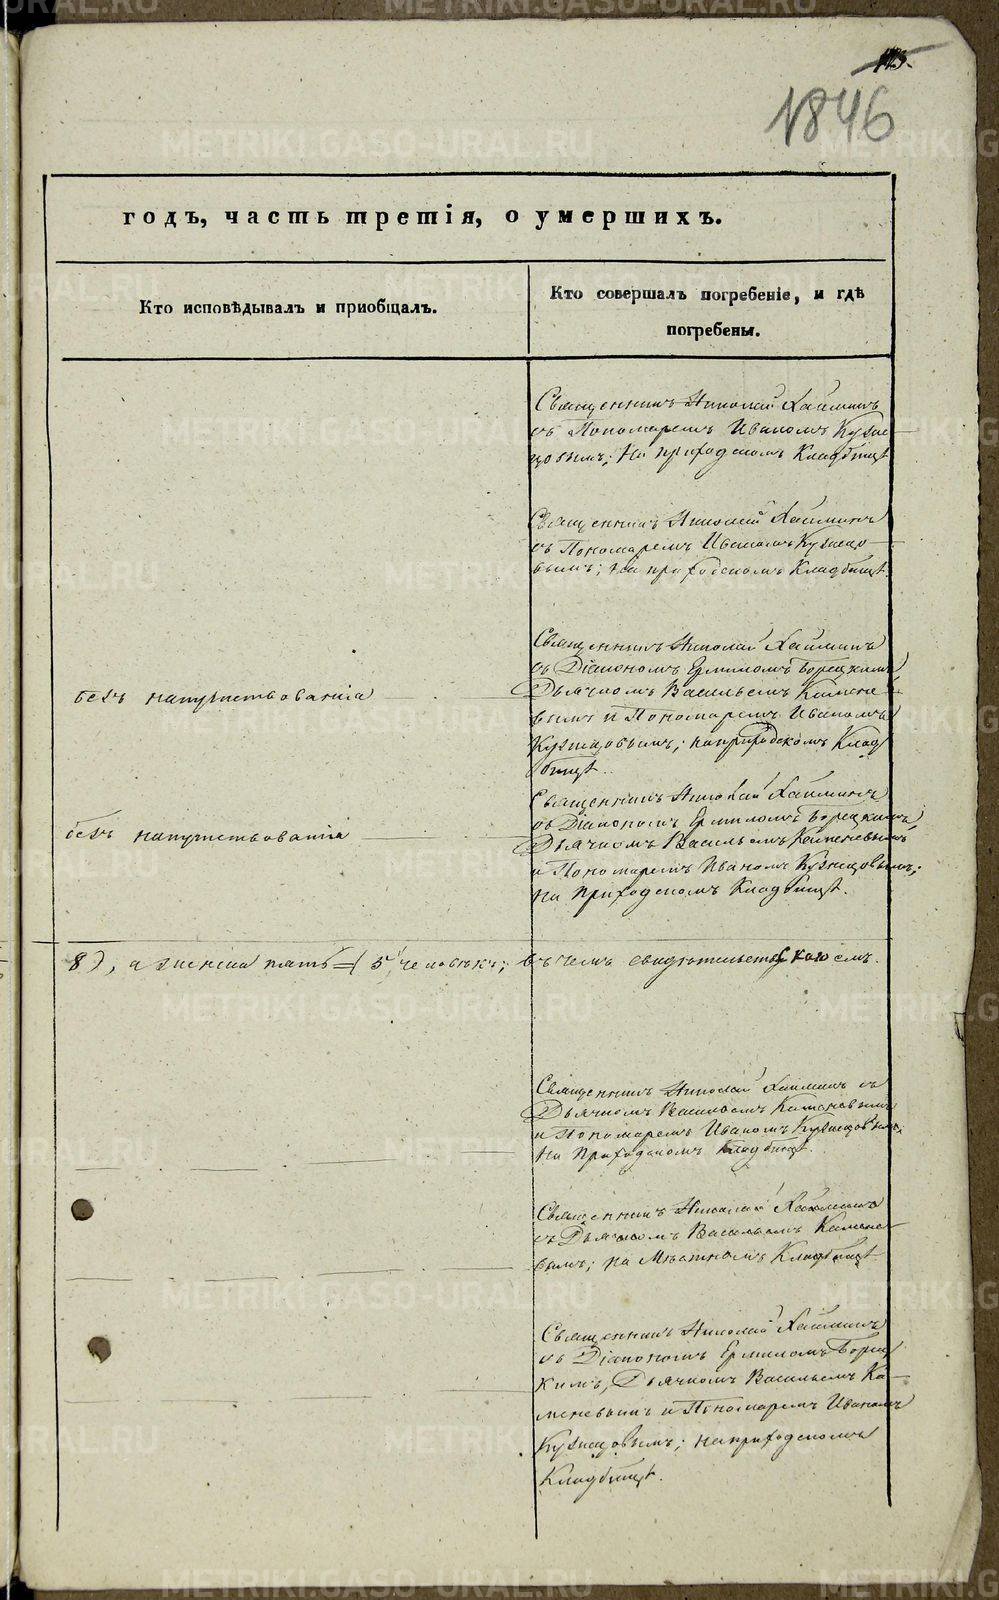 113.
1846
годъ, часть третія, о умершихъ.
Кто исповѣдывалъ и приобщалъ.
Кто совершалъ погребеніе, и гдѣ
погребены.
Священникъ Николай Хаймин
съ Пономаремъ Иваномъ Кузне
цовымъ; На приходскомъ Кладбищѣ
Священникъ Николай Хаймин
съ Пономаремъ Иваномъ Кузнецо
вымъ; На приходскомъ Кладбищѣ.
безъ напутствованія
Священникъ Николай Хаймин
съ Діакономъ Ермиломъ Борецкимъ
Дьячкомъ Васильемъ Камене
вымъ и Пономаремъ Иваномъ
Кузнецовымъ; на приходскомъ Клад
бищѣ.
безъ напутствованія
Священникъ Николай Хаймин
съ Діакономъ Ермиломъ Борецкимъ
Дьячкомъ Васильемъ Каменевымъ
и Пономаремъ Иваномъ Кузнецовымъ;
на Приходскомъ Кладбищѣ.
8), а женска пять =( 5 человѣкъ; въ чемъ свидѣтельствуемъ.
Священникъ Николай Хаймин съ
Дьячкомъ Васильемъ Каменевымъ
и Пономаремъ Иваномъ Кузнецовымъ
На Приходскомъ Кладбищѣ.
Священникъ Николай Хаймин
съ Дьячкомъ Васильемъ Камене
вымъ; на Мѣстномъ Кладбищѣ
Священникъ Николай Хаймин
съ Діакономъ Ермиломъ Борец
кимъ, Дьячкомъ Васильемъ Ка
меневымъ и Пономаремъ Иваномъ
Кузнецовымъ; на приходскомъ
Кладбищѣ.
METRIKI.GASO-URAL.RU